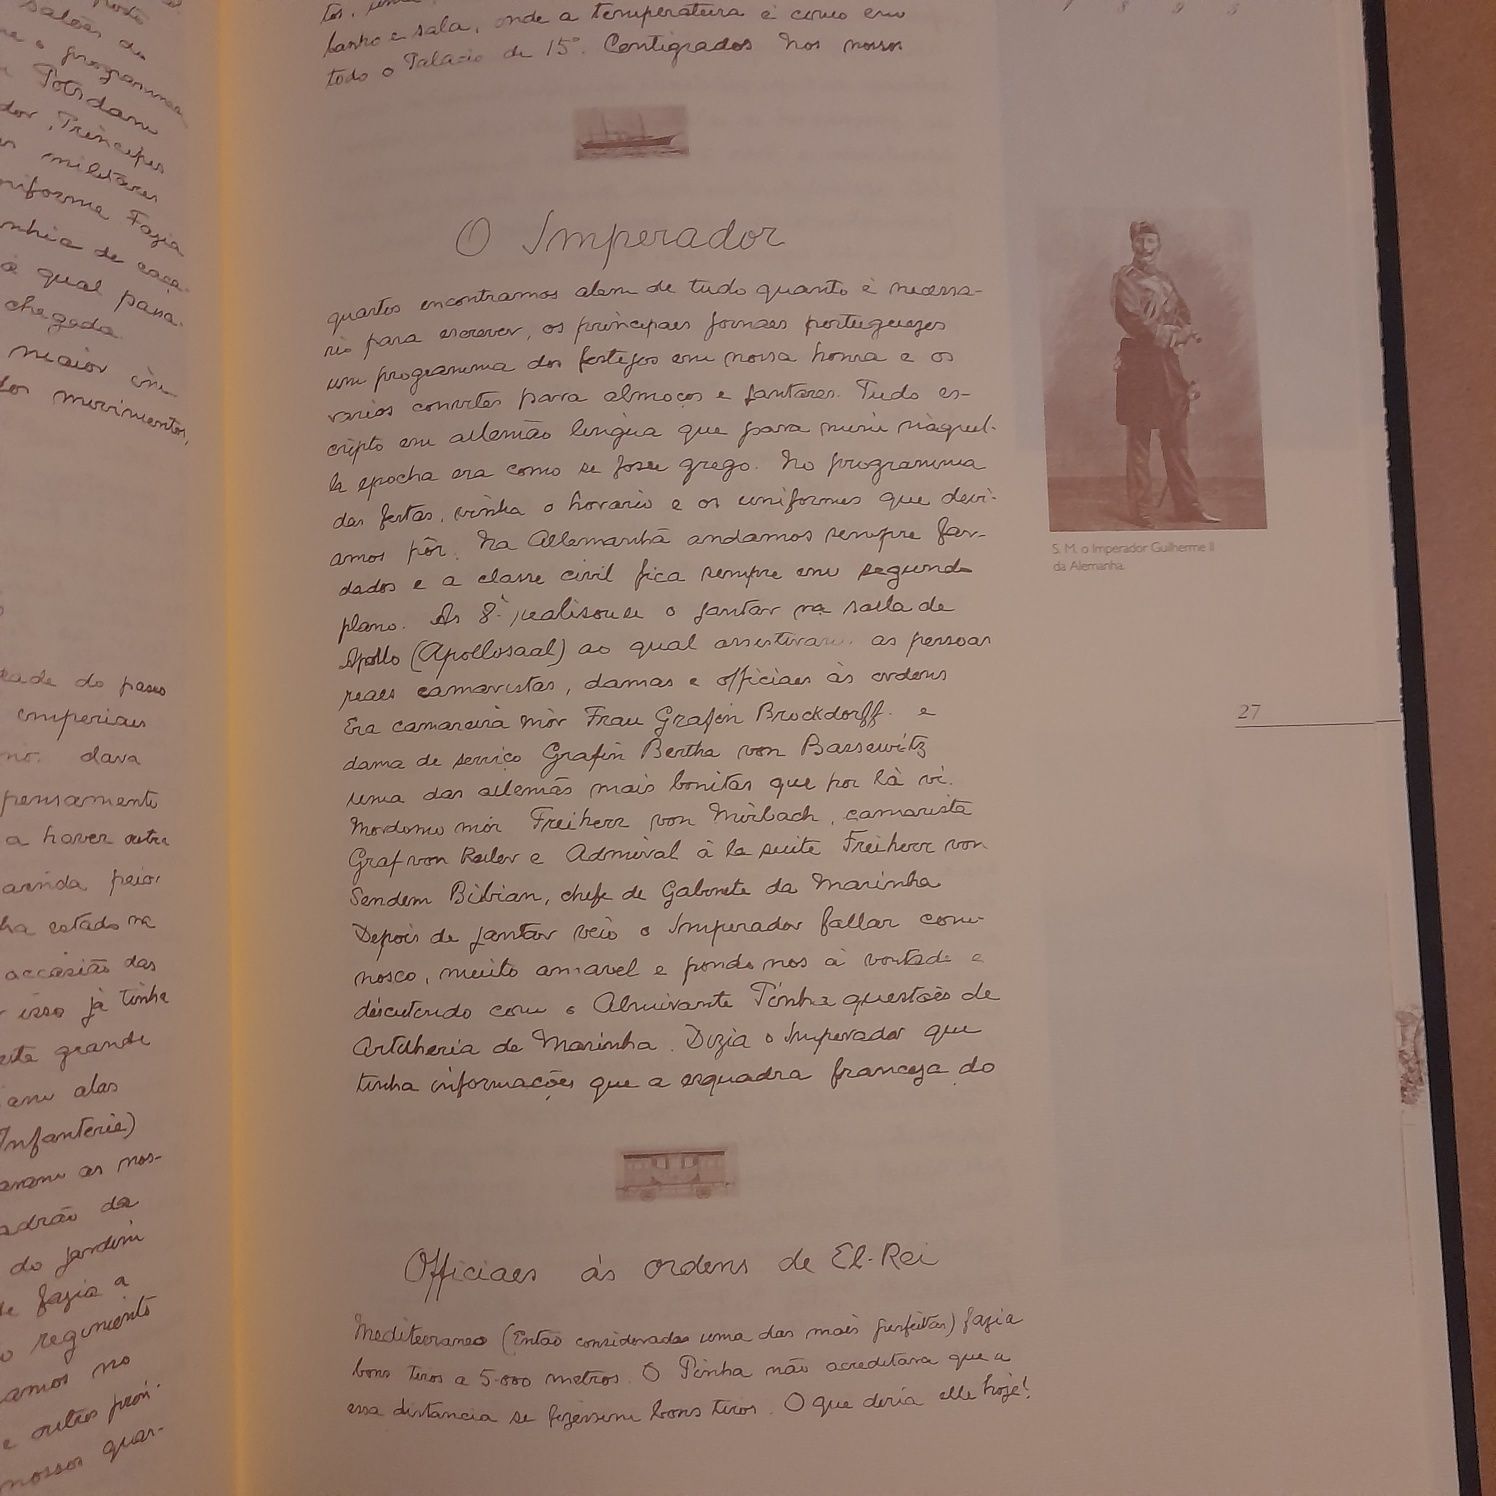 poste
salões do
e o programma
Potsdam
dor, Principes
militares
uniforme Fazia
de caça-
à qual passa-
chegada
maior
dos movimentos,
do passo
imperiaes
dava
pensamento
a haver outra
ainda peior
estado na
occasião das
isso já tinha
este grande
alas
Infanteria)
as nos-
da
do jardim
fazia a
regimento
amos no
e outros
nossos quar-
tos, uma
banho e sala, onde a temperatura é como em
todo o Palacio de 15º. Centigrados Nos nossos
O Imperador
quartos encontramos alem de tudo quanto é necessa-
rio para escrever, os principaes jornaes portuguezes
um programma dos festejos em nossa honra e os
varios convites para almoços e jantares. Tudo es-
cripto em allemão lingua que para mim n'aquel-
la epocha era como se fosse grego. No programma
das festas, vinha o horario e os uniformes que devi-
amos pôr. Na Allemanhã andamos sempre far-
dados e a classe civil fica sempre em segundo
plano. Ás 8h realisou-se o jantar na salla de
Apollo (Apollosaal) ao qual assistiram as pessoas
reaes camaristas, damas e officiaes às ordens
Era camareira mór Frau Grafin Brockdorff e
dama de serviço Grafin Bertha von Bassewitz
uma das allemãs mais bonitas que por là vi.
Mordomo mór Freiherr von Mirbach, camarista
Graf von e Admiral à la suite Freiherr von
Sendem Bibian, chefe de Gabinete da Marinha
Depois de jantar veio o Imperador fallar com-
nosco, muito amavel e pondo nos à vontade e
discutindo com o Almirante Pinha questões de
Artilheria de Marinha. Dizia o Imperador que
tinha informações que a esquadra franceza do
Officiaes ás ordens de El-Rei
Mediterraneo (Então considerada uma das mais perfeitas) fazia
bons tiros a 5.000 metros. O Pinha não acreditava que a
essa distancia se fizessem bons tiros. O que diria elle hoje!
S. M. o Imperador Guilherme II
da Alemanha.
27